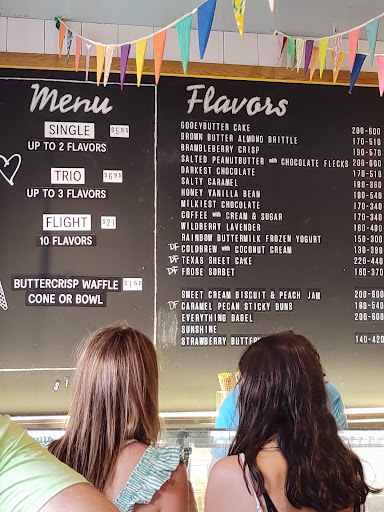 Menu
SINGLE $5.95
UP TO 2 FLAVORS
TRIO $6.95
UP TO 3 FLAVORS
FLIGHT $21
10 FLAVORS
BUTTERCRISP WAFFLE $1.50
CONE OR BOWL
Flavors
GOOEY BUTTER CAKE 200-600
BROWN BUTTER ALMOND BRITTLE 170-510
BRAMBLEBERRY CRISP 190-570
SALTED PEANUTBUTTER with CHOCOLATE FLECKS 200-600
DARKEST CHOCOLATE 170-510
SALTY CARAMEL 180-360
HONEY VANILLA BEAN
MILKIEST CHOCOLATE 180-540
COFFEE with CREAM & SUGAR 170-340
WILDBERRY LAVENDER 160-480
RAINBOW BUTTERMILK FROZEN YOGURT 150-300
DF COLDBREW with COCONUT CREAM 130-390
DF TEXAS SHEET CAKE 220-440
DF FROSE SORBET 160-370
SWEET CREAM BISCUIT & PEACH JAM 200-600
DF CARAMEL PECAN STICKY BUNS 180-540
EVERYTHING BAGEL 200-600
SUNSHINE
STRAWBERRY 140-420